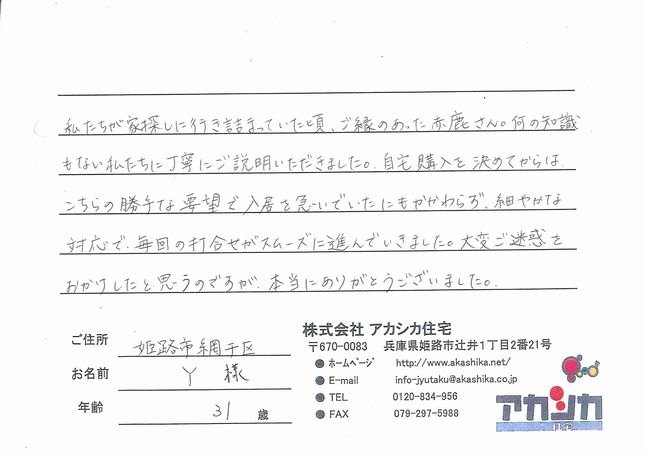 私たちが家探しに行き詰まっていた頃、ご縁のあった赤鹿さん。何の知識
もない私たちに丁寧にご説明いただきました。自宅購入を決めてからは、
こちらの勝手な要望で入居を急いでいたにもかかわらず、細やかな
対応で、毎回の打合せがスムーズに進んでいきました。大変ご迷惑を
おかけしたと思うのですが、本当にありがとうございました。
ご住所 姫路市網干区
お名前 Y 様
年齢 31 歳
株式会社 アカシカ住宅
〒670-0083 兵庫県姫路市辻井1丁目2番21号
●ホームページ http://www.akashika.net/
●E-mail info-jyutaku@akashika.co.jp
●TEL 0120-834-956
●FAX 079-297-5988
アカシカ
住宅